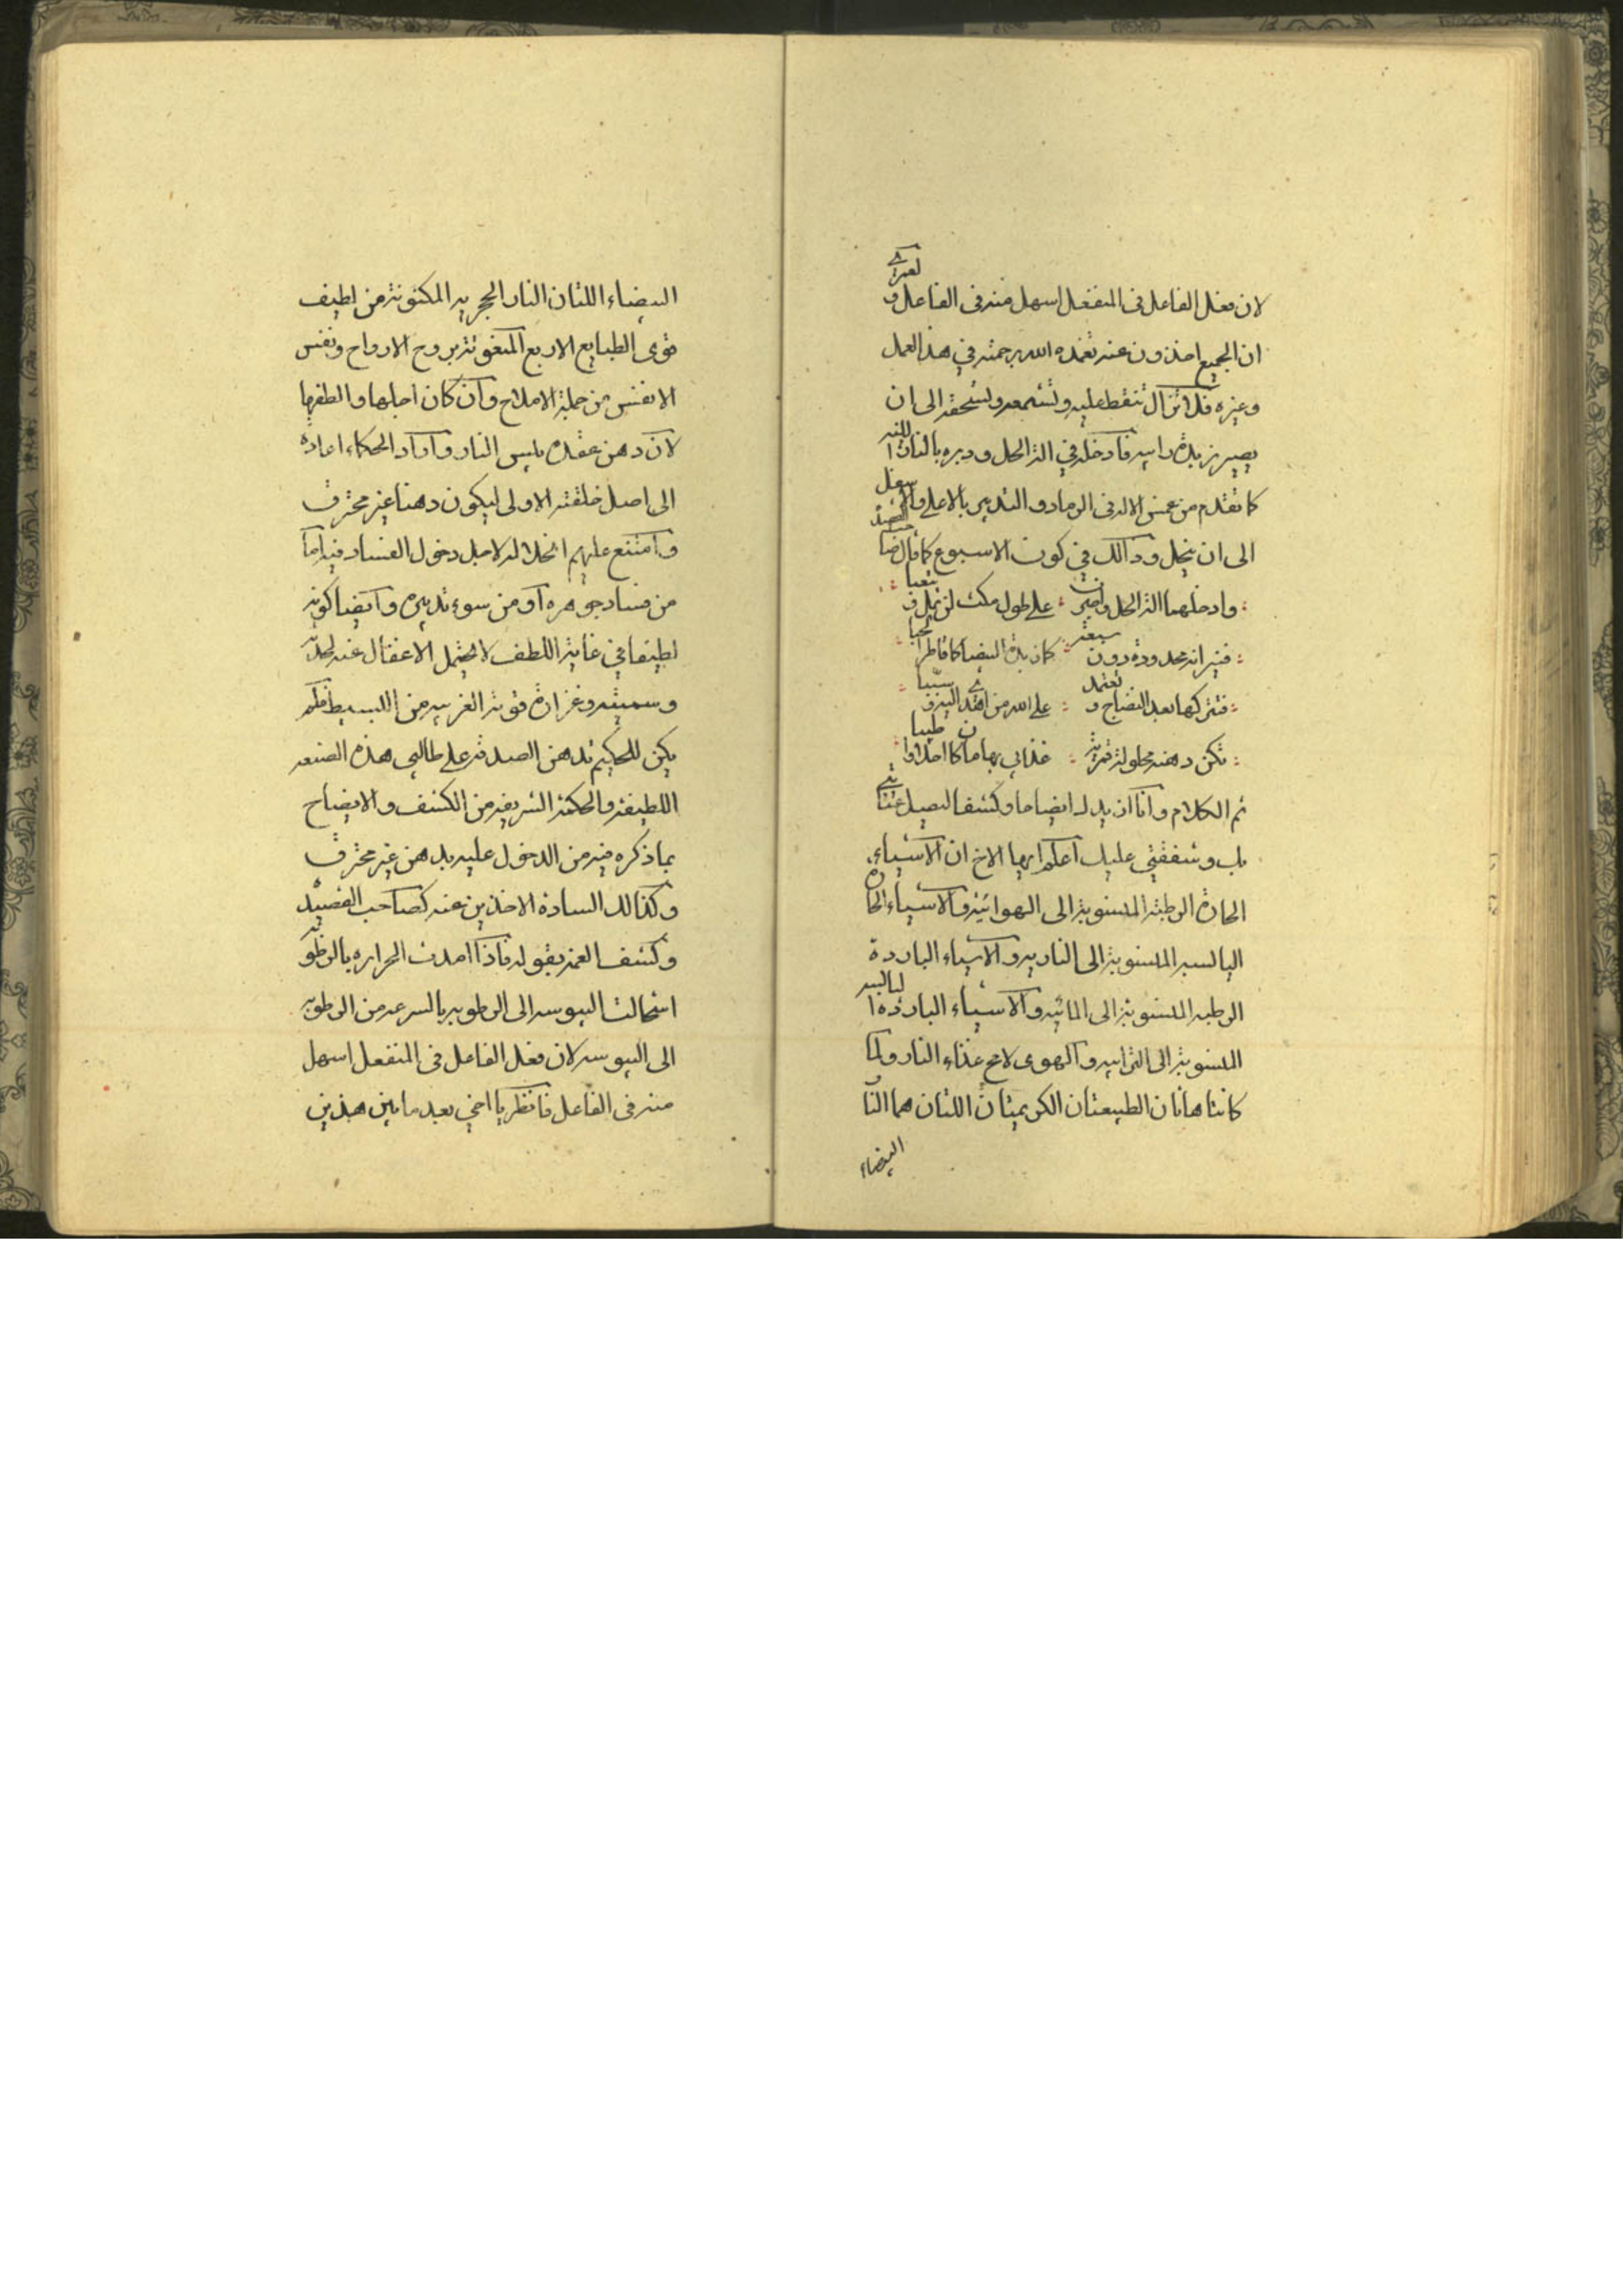 لان فعل الفاعل فى المنفعل اسهل منه فى الفاعل و لعمرى
ان الجميع اخذون عنه تغمده الله برحمته في هذا العمل
وغيره فلا تزال تنقط عليه وتشمعه وتسحقه الى ان
يصير زبدة رابيه فادخله في الة الحل ودبره بالنار اللينه
كما تقدم من غمس الاله فى الرماد والتدبير بالاعلى والاسفل
الى ان ينحل وذالك في كون الاسبوع كما قال صاحب القصيد
وادخلهما الة الحل واصبرن على طول مكث لن تمل وتتعبا
فنيرانه محدودة دون سبعة كان بدة البيضا كما قاطرا
فتتركها بعد النضاج وتعتمد على الله من اهدى اليه وسببا
تكن دهنه محلولة قمرية غذاىى بها ماكا احلا وا طيبا
تم الكلام وانا ازيدك ايضاحا وكشفا ليصيل عنايتى
بك وشفقتي عليك اعلم ايها الاخ ان الاشياء
الحارة الرطبة المنسوبة الى الهوائية والاشياء الحارة
اليابسه المنسوبة الى الناريه والاشياء الباردة
الرطبه المنسوبة الى المائيه والاشياء الباردة اليابسه
المنسوبة الى الترابيه والهوى لامح غذاء النار ولما
كانتا هاتان الطبيعتان الكريمتان اللتان هما النار
البيضاء
البيضاء اللتان النار الحجريه المكنونة من لطيف
قوى الطبايع الاربع المنعونة بروح الارواح ونفس
الانفس من جملة الاملاح وان كان اجلها والطفها
لان دهن عقده بيبس النار واراد الحكماء اعادة
الى اصل خلقته الاولى ليكون دهنا غير محترق
وامتنع عليهم انحلاله لاجل دخول الفساد فيه اما
من فساد جوهره او من سوء تدبيره وايضا كونه
لطيفا في غاية اللطف لا يحتمل الاعفال عنه لحدّته
وسميته وغزارة قوته الغريبه من البسيط فلم
يكن للحكيم بد من الصدقه على طالبي هذه الصنعه
اللطيفة والحكمة الشريفه من الكشف والايضاح
بما ذكره فيه من الدخول عليه بدهن غير محترق
وكذالك السادة الاخذين عنه كصاحب القصيد
وكشف الغمة بقوله فاذا امدت الحراره بالرطوبه
استحالت اليبوسه الى الرطوبه بالسرعه من الرطوبه
الى اليبوسه لان فعل الفاعل فى المنفعل اسهل
منه فى الفاعل فانظر يا اخي بعد ما بين هذين